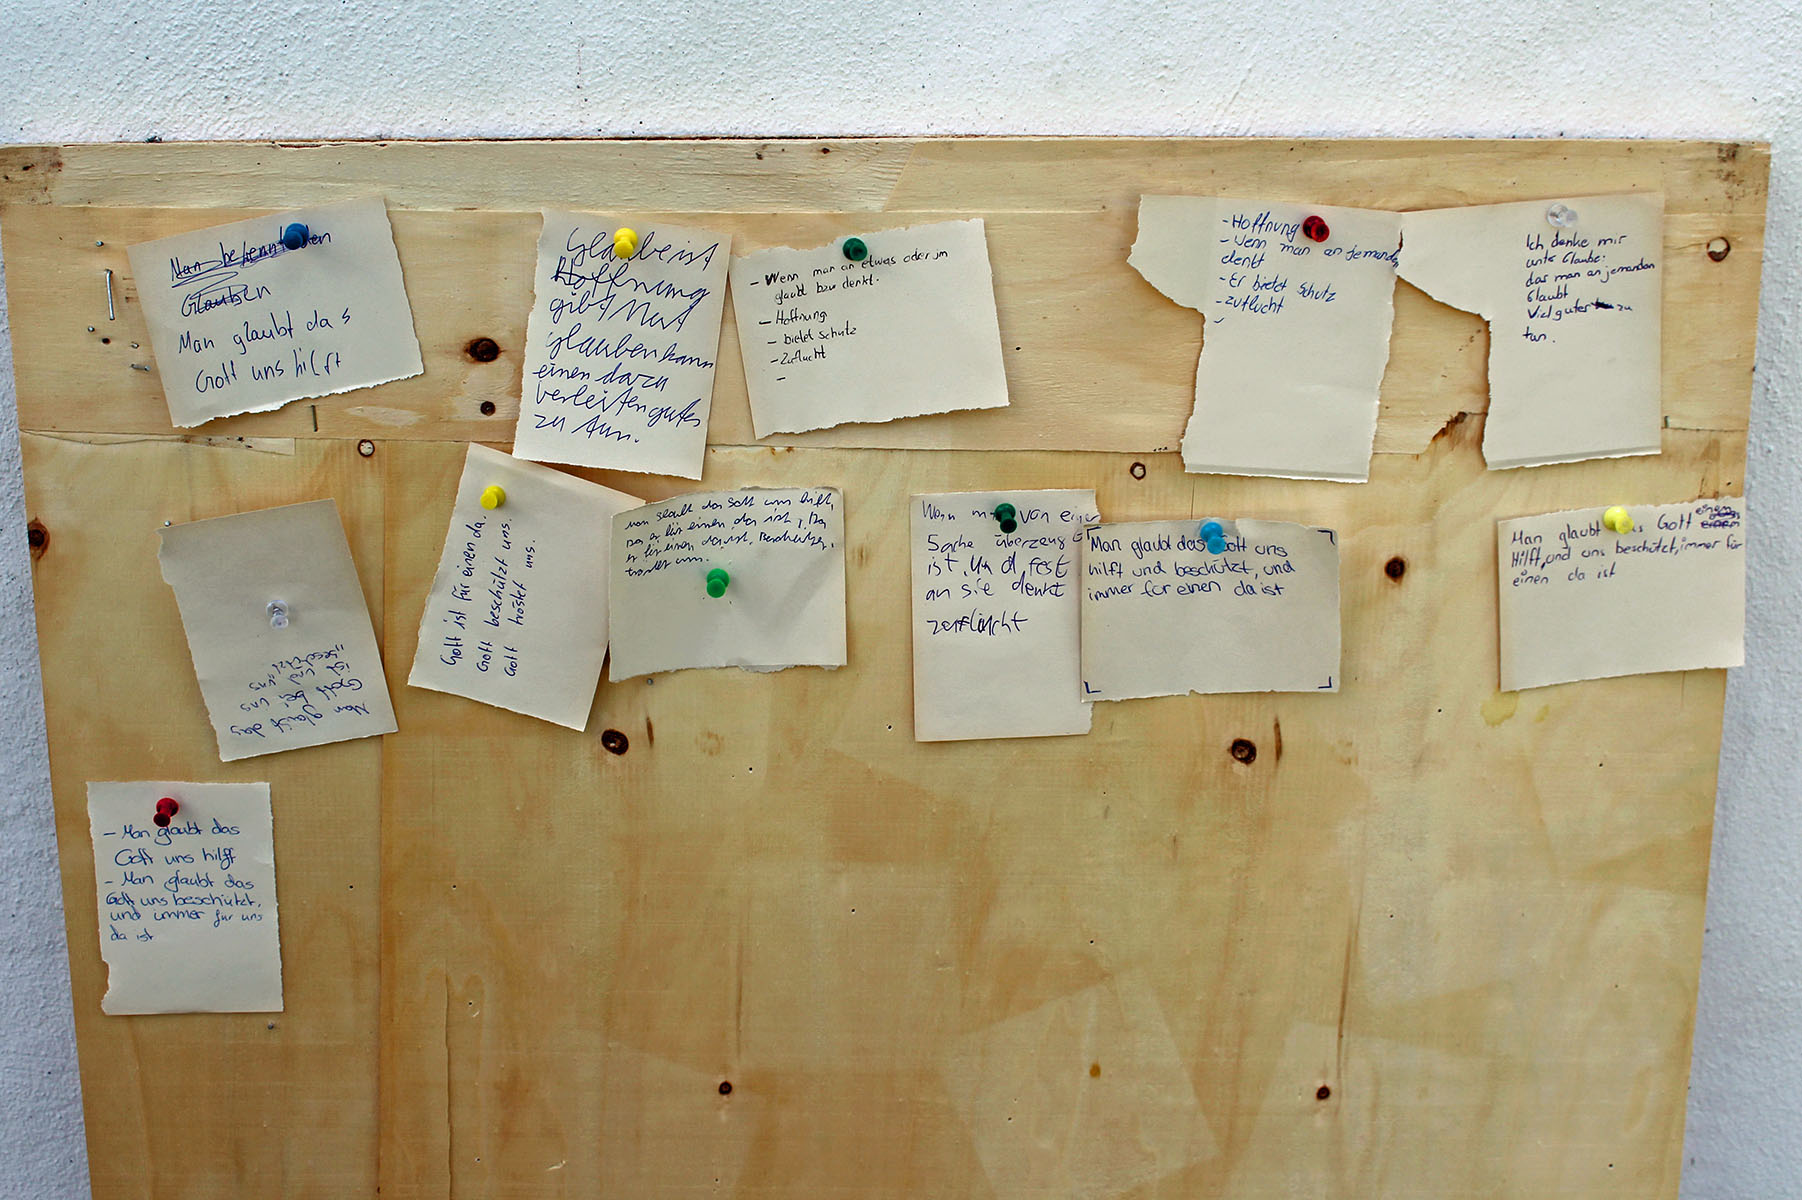 Man bekennt den
Glauben
Man glaubt das
Gott uns hilft
Glaube ist
Hoffnung
gibt Mut
Glauben kann
einen dazu
verleiten gutes
zu tun.
- Wenn man an etwas oder im
glaubt bzw denkt.
- Hoffnung
- bietet Schutz
- Zuflucht
-
- Hoffnung
- Wenn man an jemanden
denkt
- Er bietet Schutz
- zuflucht
-
Ich denke mir
unte Glaube:
das man an jemanden
Glaubt
Viel guter zu
tun.
Man glaubt das
Gott bei uns
ist und
uns
beschützt
Gott ist für einen da.
Gott beschützt uns.
Gott tröstet uns.
man glaubt das Gott uns hilft,
Das er für einen da ist, Das
er für einen da ist, Beschützer,
tröstet uns.
Wenn von einer
Sache überzeugt
ist, Und fest
an sie denkt
zuflucht
Man glaubt das Gott uns
hilft und beschützt, und
immer für einen da ist
Man glaubt das Gott einem
Hilft, und uns beschützt, immer für
einen da ist
- Man glaubt das
Gott uns hilft
- Man glaubt das
Gott uns beschützt,
und immer für uns
da ist